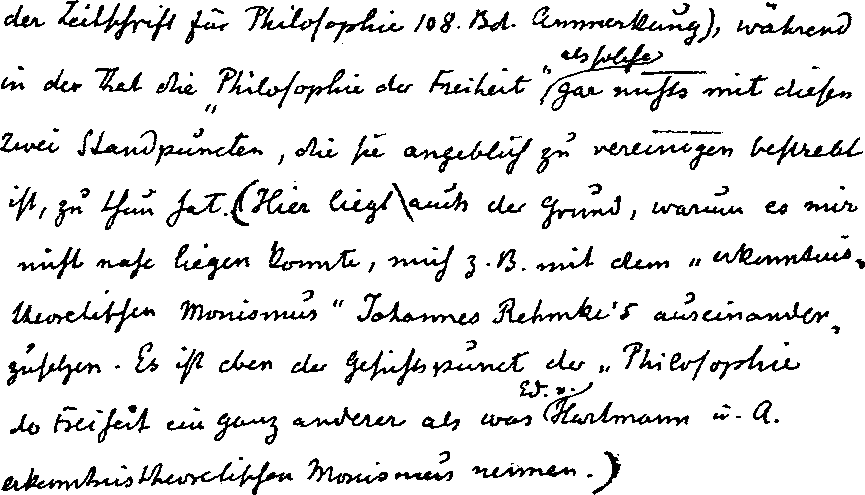 der Zeitschrift für Philosophie 108. Bd. Anmerkung), während
in der That die „Philosophie der Freiheit“ als solche gar nichts mit diesen
zwei Standpuncten, die sie angeblich zu vereinigen bestrebt
ist, zu thun hat. (Hier liegt auch der Grund, warum es mir
nicht nahe liegen konnte, mich z. B. mit dem „erkenntnis-
theoretischen Monismus“ Johannes Rehmke's auseinander-
zusetzen. Es ist eben der Gesichtspunct der „Philosophie
der Freiheit ein ganz anderer als was Ed. v. Hartmann u. A.
erkenntnistheoretischen Monismus nennen.)